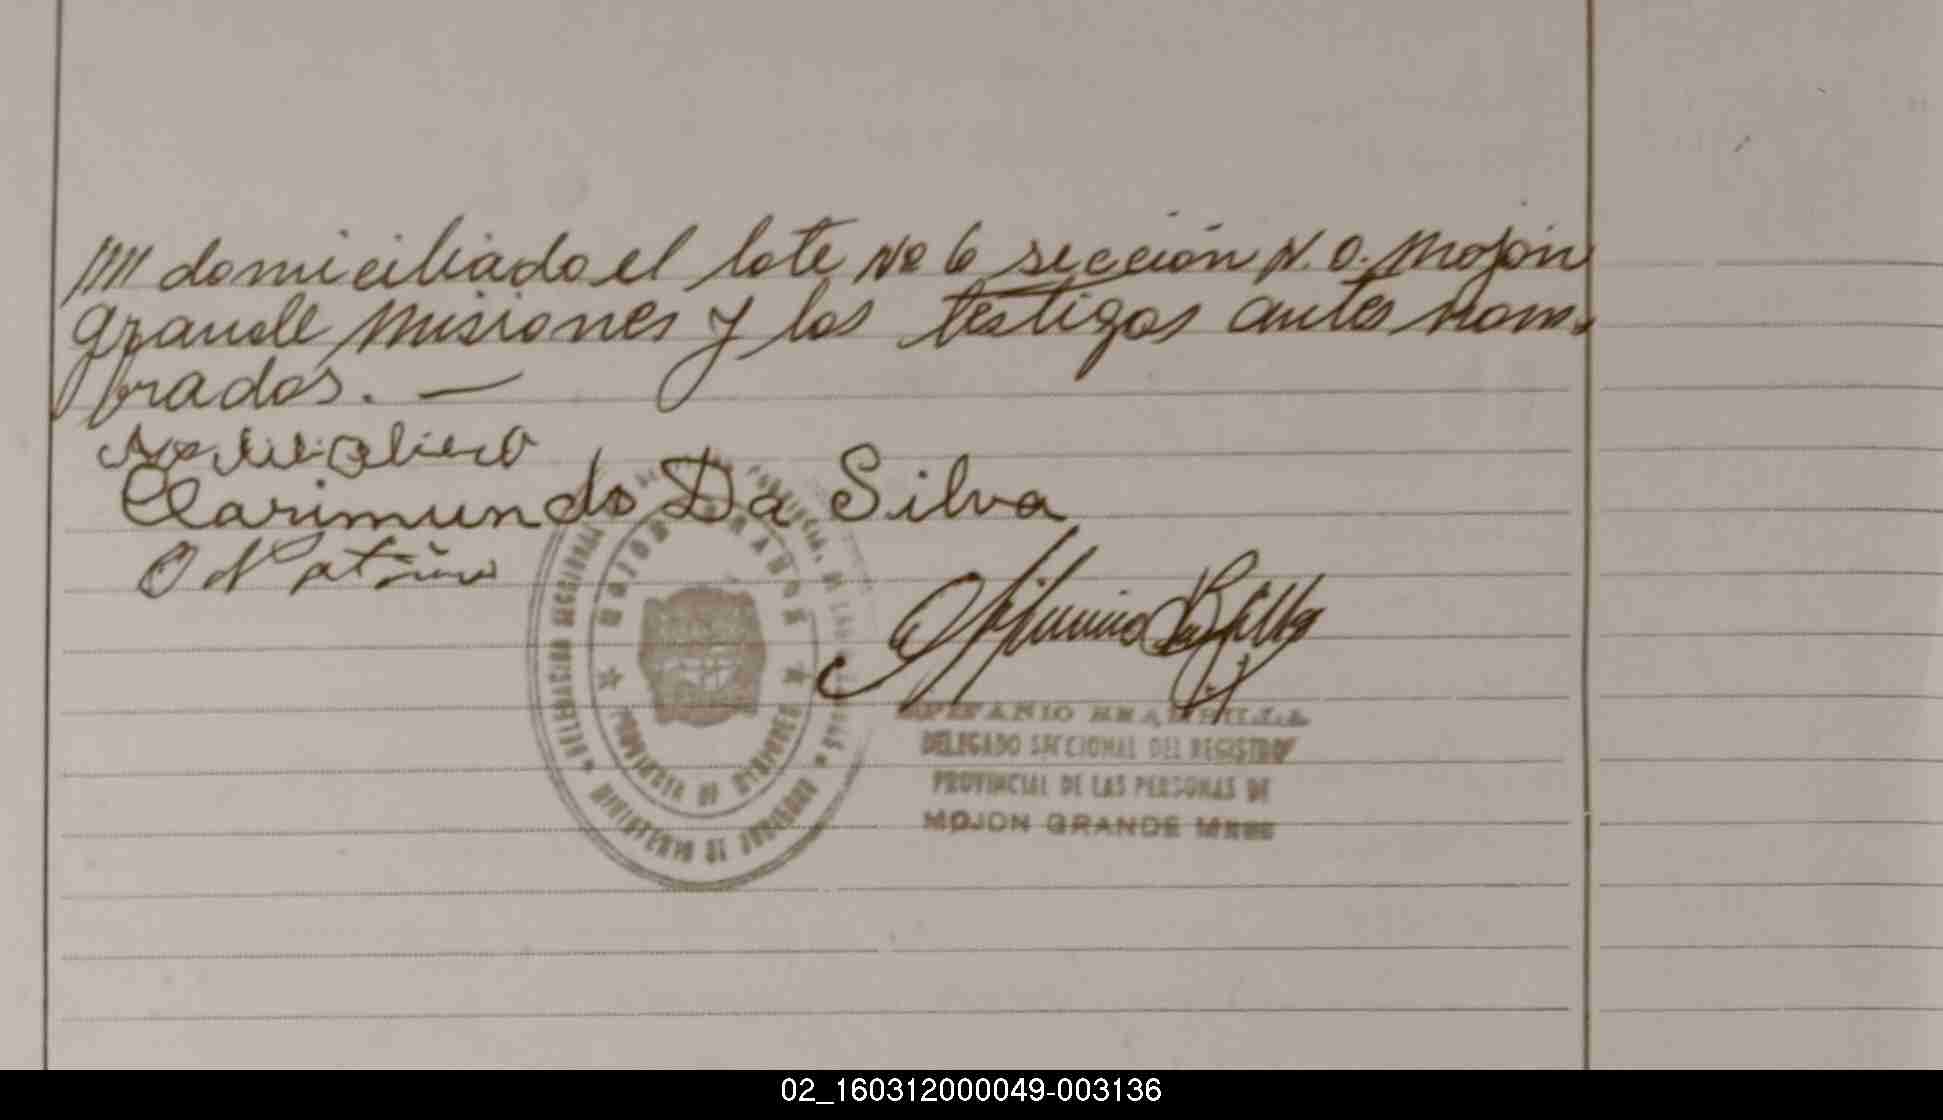 //// domiciliado el lote No 6 sección N.O. Mojón
grande Misiones y los testigos antes nom-
brados. —
Clarimundo Da Silva
DELEGACION SECCIONAL
MOJON GRANDE
PROVINCIA DE MISIONES
MINISTERIO DE GOBIERNO
EPIFANIO
DELEGADO SECCIONAL DEL REGISTRO
PROVINCIAL DE LAS PERSONAS DE
MOJON GRANDE MNES
02_160312000049-003136